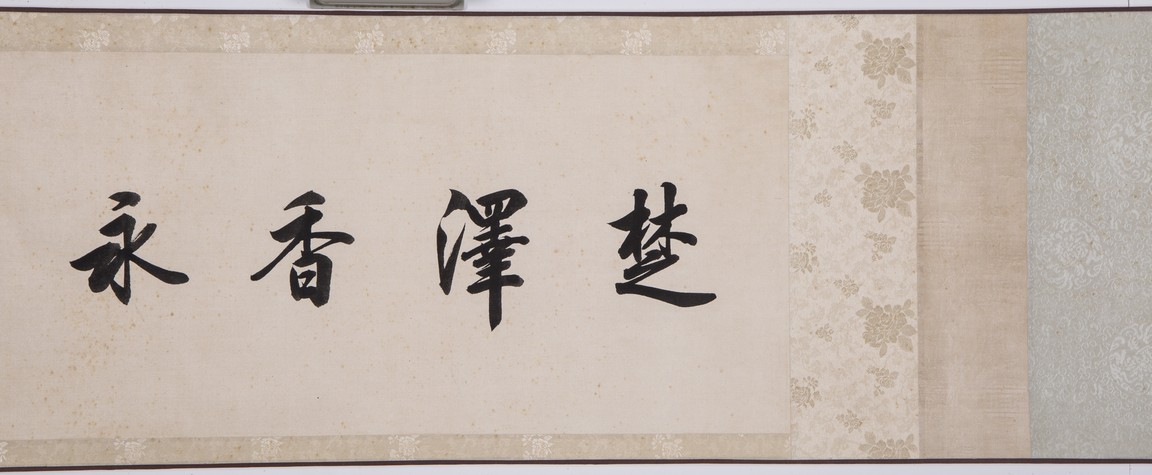 楚澤香永